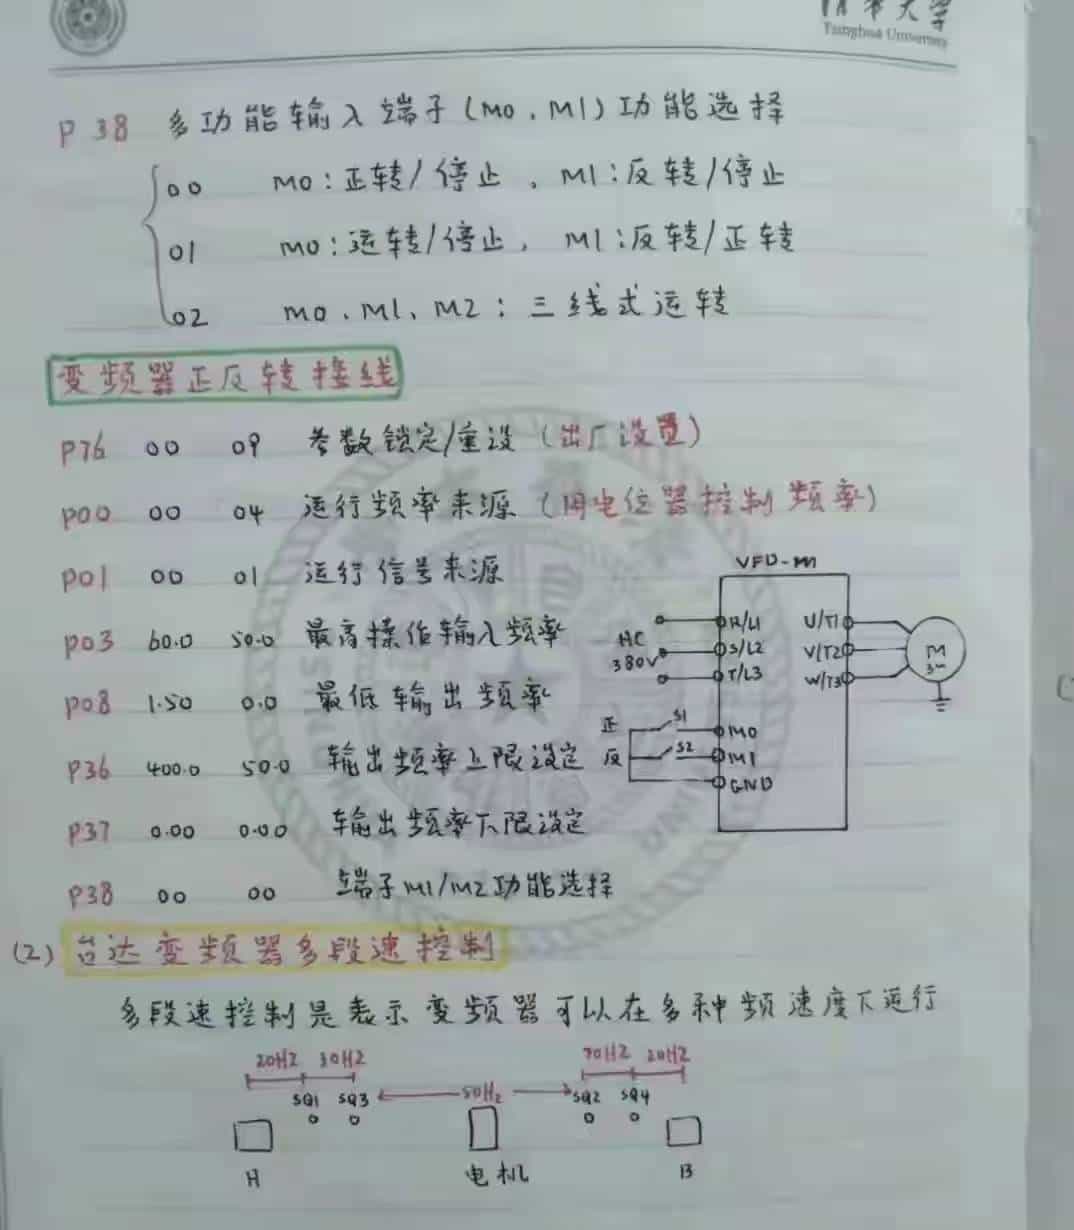 清华大学
Tsinghua University
P38 多功能输入端子(M0、M1)功能选择
00 M0:正转/停止,M1:反转/停止
01 M0:运转/停止,M1:反转/正转
02 M0、M1、M2:三线式运转
变频器正反转接线
P76 00 09 参数锁定/重设(出厂设置)
P00 00 04 运行频率来源(用电位器控制频率)
P01 00 01 运行信号来源
P03 60.0 50.0 最高操作输入频率
P08 1.50 0.0 最低输出频率
P36 400.0 50.0 输出频率上限设定
P37 0.00 0.00 输出频率下限设定
P38 00 00 端子M1/M2功能选择
VFD-M
AC 380V
R/L1 U/T1
S/L2 V/T2
T/L3 W/T3
M 3~
正 S1 M0
反 S2 M1
GND
(2) 台达变频器多段速控制
多段速控制是表示变频器可以在多种频速度下运行
20HZ 30HZ 50Hz 30HZ 20HZ
SQ1 SQ3 SQ2 SQ4
A 电机 B